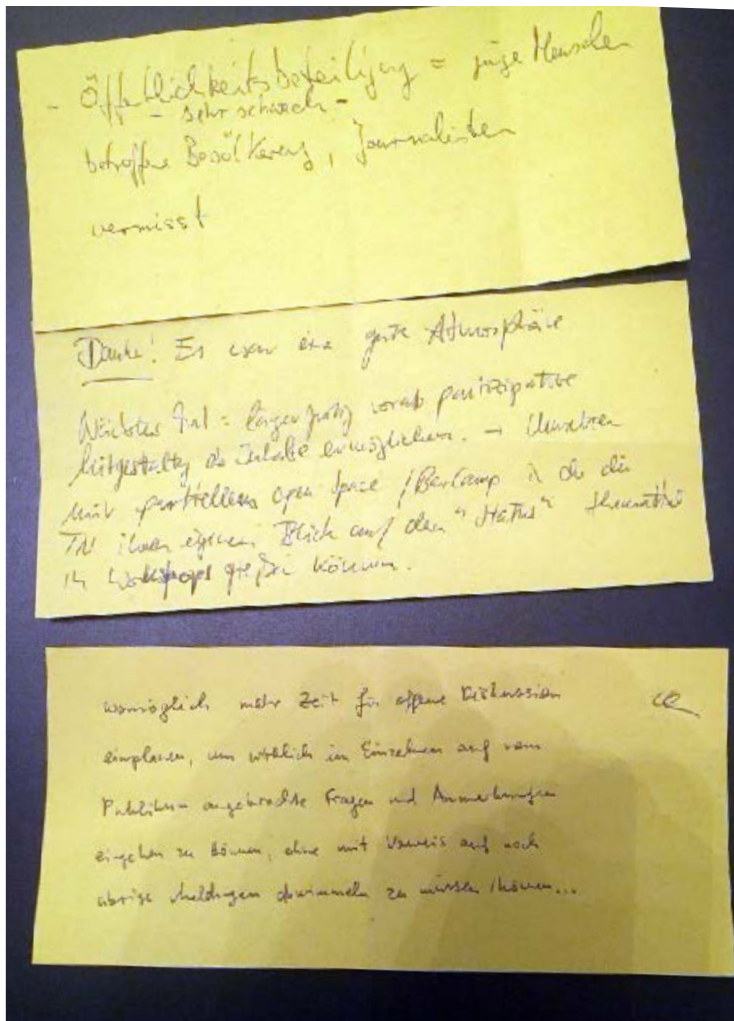 - Öffentlichkeitsbeteiligung = junge Menschen
- sehr schwach -
betroffene Bevölkerung, Journalisten
vermisst
Danke! Es war eine gute Atmosphäre
Nächstes Mal = längerfristig vorab partizipative
Mitgestaltung der Inhalte ermöglichen. →
mit partiellem open space / BarCamp in der die
TN ihren eigenen Blick auf den "Status"
in Workshops gießen können.
womöglich mehr Zeit für offene Diskussion
einplanen, um wirklich im Einzelnen auf vom
Publikum angebrachte Fragen und Anmerkungen
eingehen zu können, ohne mit Verweis auf noch
übrige Meldungen abwimmeln zu müssen / können...